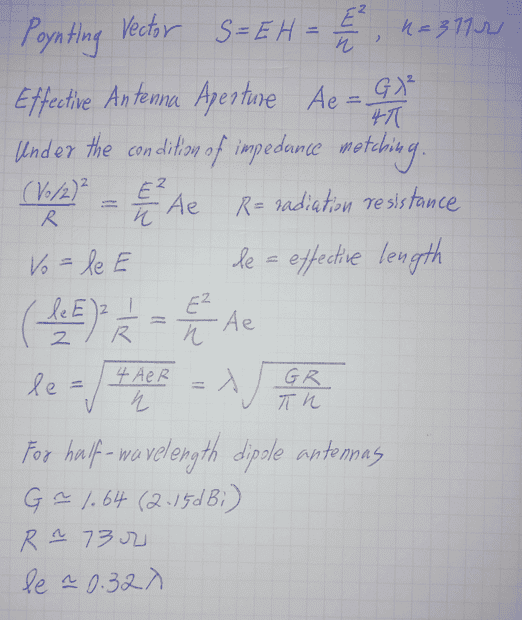 Poynting Vector S=EH = E²/η , η=377Ω
Effective Antenna Aperture Ae = Gλ²/4π
Under the condition of impedance matching.
(Vo/2)²/R = E²/η Ae R= radiation resistance
Vo = le E le = effective length
(leE/2)² 1/R = E²/η Ae
le = √(4AeR/η) = λ√(GR/πη)
For half-wavelength dipole antennas
G ≃ 1.64 (2.15dBi)
R ≃ 73Ω
le ≃ 0.32λ